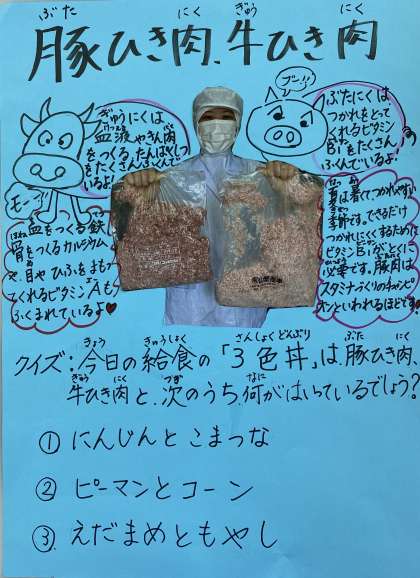 ぶた にく ぎゅう にく
豚ひき肉、牛ひき肉
ぎゅうにくは
血液やきん肉
をつくる、たんぱくしつ
をたくさんふくんで
いるよ!
モー
血をつくる鉄
骨をつくるカルシウム
や、目や ひふをまもっ
てくれるビタミンAも
ふくまれているよ♥
ブー!!
ぶたにくは
つかれをとって
くれるビタミン
B1をたくさん
ふくんでいるよ!
夏は暑くて、つかれやすい
季節です。できるだけ
つかれにくくするために
ビタミンB1が、とくに
必要です。豚肉は
スタミナづくりのチャンピ
オンといわれるほどです。
きょう きゅうしょく さんしょくどんぶり ぶた にく
クイズ:今日の給食の「3色丼」は、豚ひき肉、
ぎゅう にく つぎ なに
牛ひき肉と、次のうち、何がはいっているでしょう?
① にんじんと こまつな
② ピーマンとコーン
③. えだまめともやし